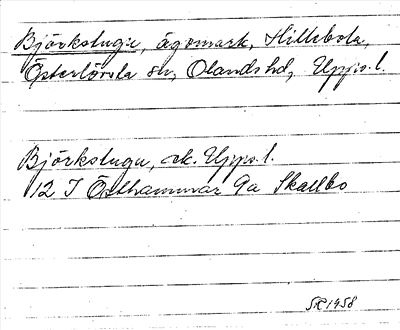 Björkstugu, ägomark, Hillebola,
Österlövsta sn, Olands hd, Upps. l.
Björkstugu, ek. Upps. l.
12 I Östhammar 9a Skallbo
1958